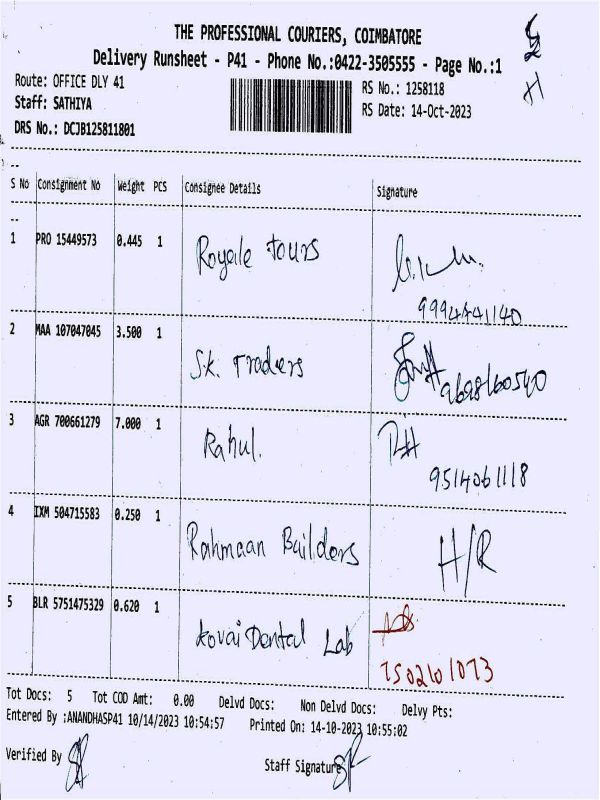 THE PROFESSIONAL COURIERS, COIMBATORE
Delivery Runsheet - P41 - Phone No.:0422-3505555 - Page No.:1
Route: OFFICE DLY 41
RS No.: 1258118
Staff: SATHIYA
RS Date: 14-Oct-2023
DRS No.: DCJB125811801
S No Consignment No Weight PCS Consignee Details Signature
1 PRO 15449573 0.445 1 Royale Tours
9994441140
2 MAA 107047045 3.500 1 S.K. Traders
9698160540
3 AGR 700661279 7.000 1 Rahul.
9514061118
4 IXM 504715583 0.250 1 Rahmaan Builders H/R
5 BLR 5751475329 0.620 1 Kovai Dental Lab
7502101073
Tot Docs: 5 Tot COD Amt: 0.00 Delvd Docs: Non Delvd Docs: Delvy Pts:
Entered By :ANANDHASP41 10/14/2023 10:54:57 Printed On: 14-10-2023 10:55:02
Verified By
Staff Signature